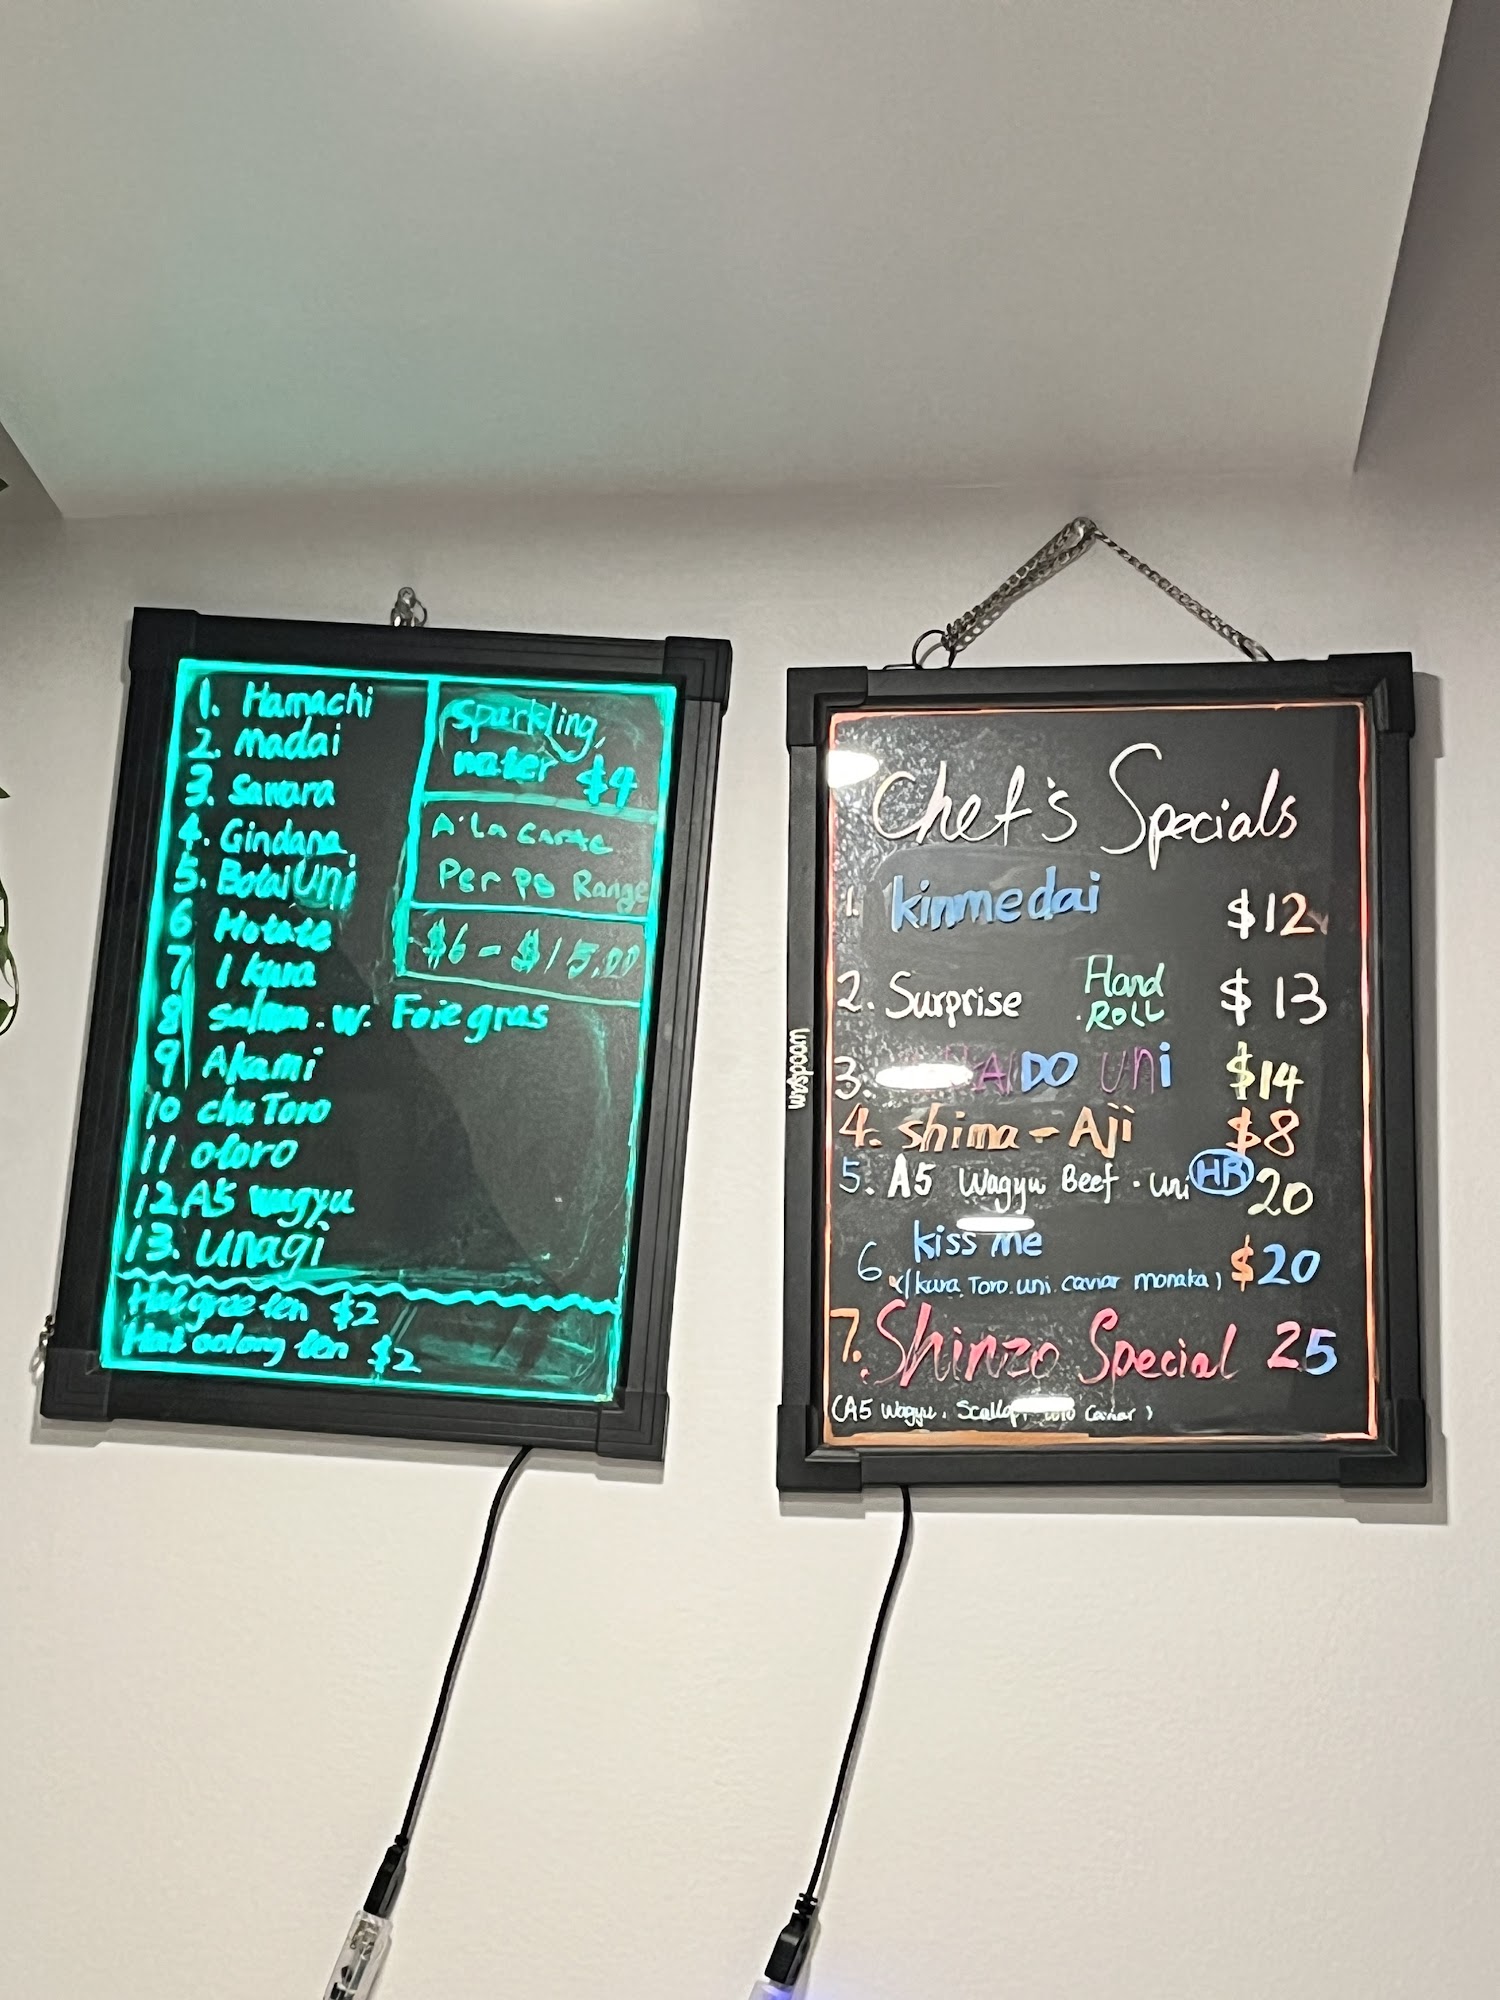 1. Hamachi
2. madai
3. Sawara
4. Gindara
5. Botai Uni
6 Hotate
7 Ikura
8 salmon. w. Foie gras
9 Akami
10 chu Toro
11 otoro
12 A5 wagyu
13. unagi
Hot green tea $2
Hot oolong tea $2
Sparkling
water $4
A'La Carte
Per Pc Range
$6 - $15.00
woodsam
Chef's Specials
1. kinmedai $12
2. Surprise Hand ROLL $13
3. UNi $14
4. shima-Aji $8
5. A5 Wagyu Beef. uni HR 20
6 kiss me $20
(Ikura. Toro. uni. caviar monaka)
7. Shinzo Special 25
(A5 Wagyu. Scallop. Caviar)